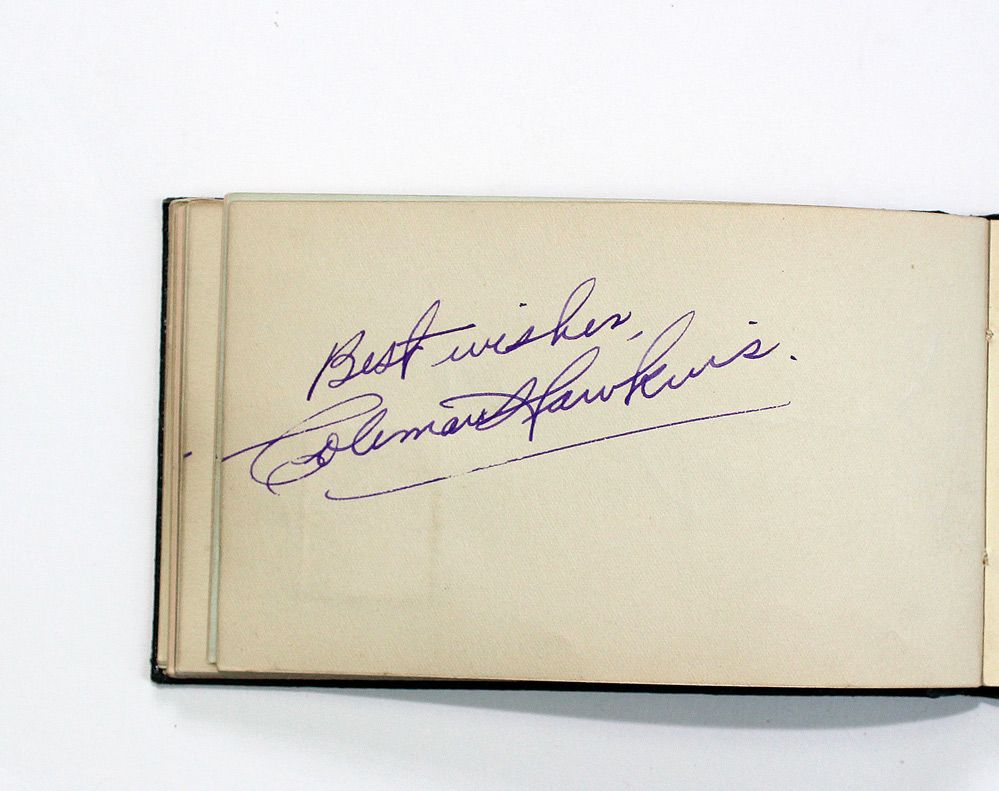 Best wishes,
Coleman Hawkins.